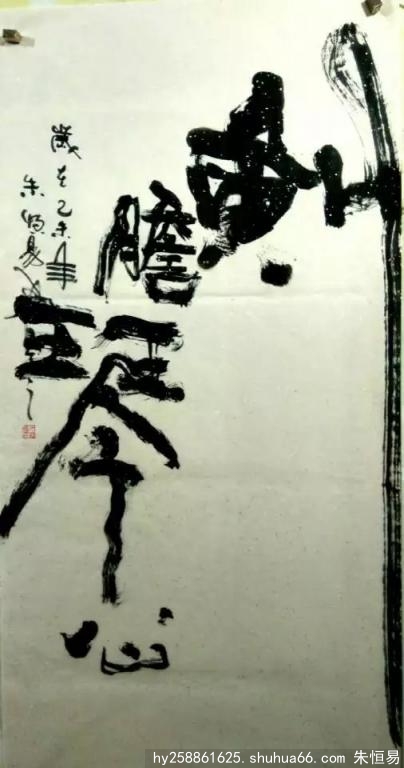 劍
膽琴心
歲在乙未年
朱恒易
hy258861625.shuhua66.com 朱恒易